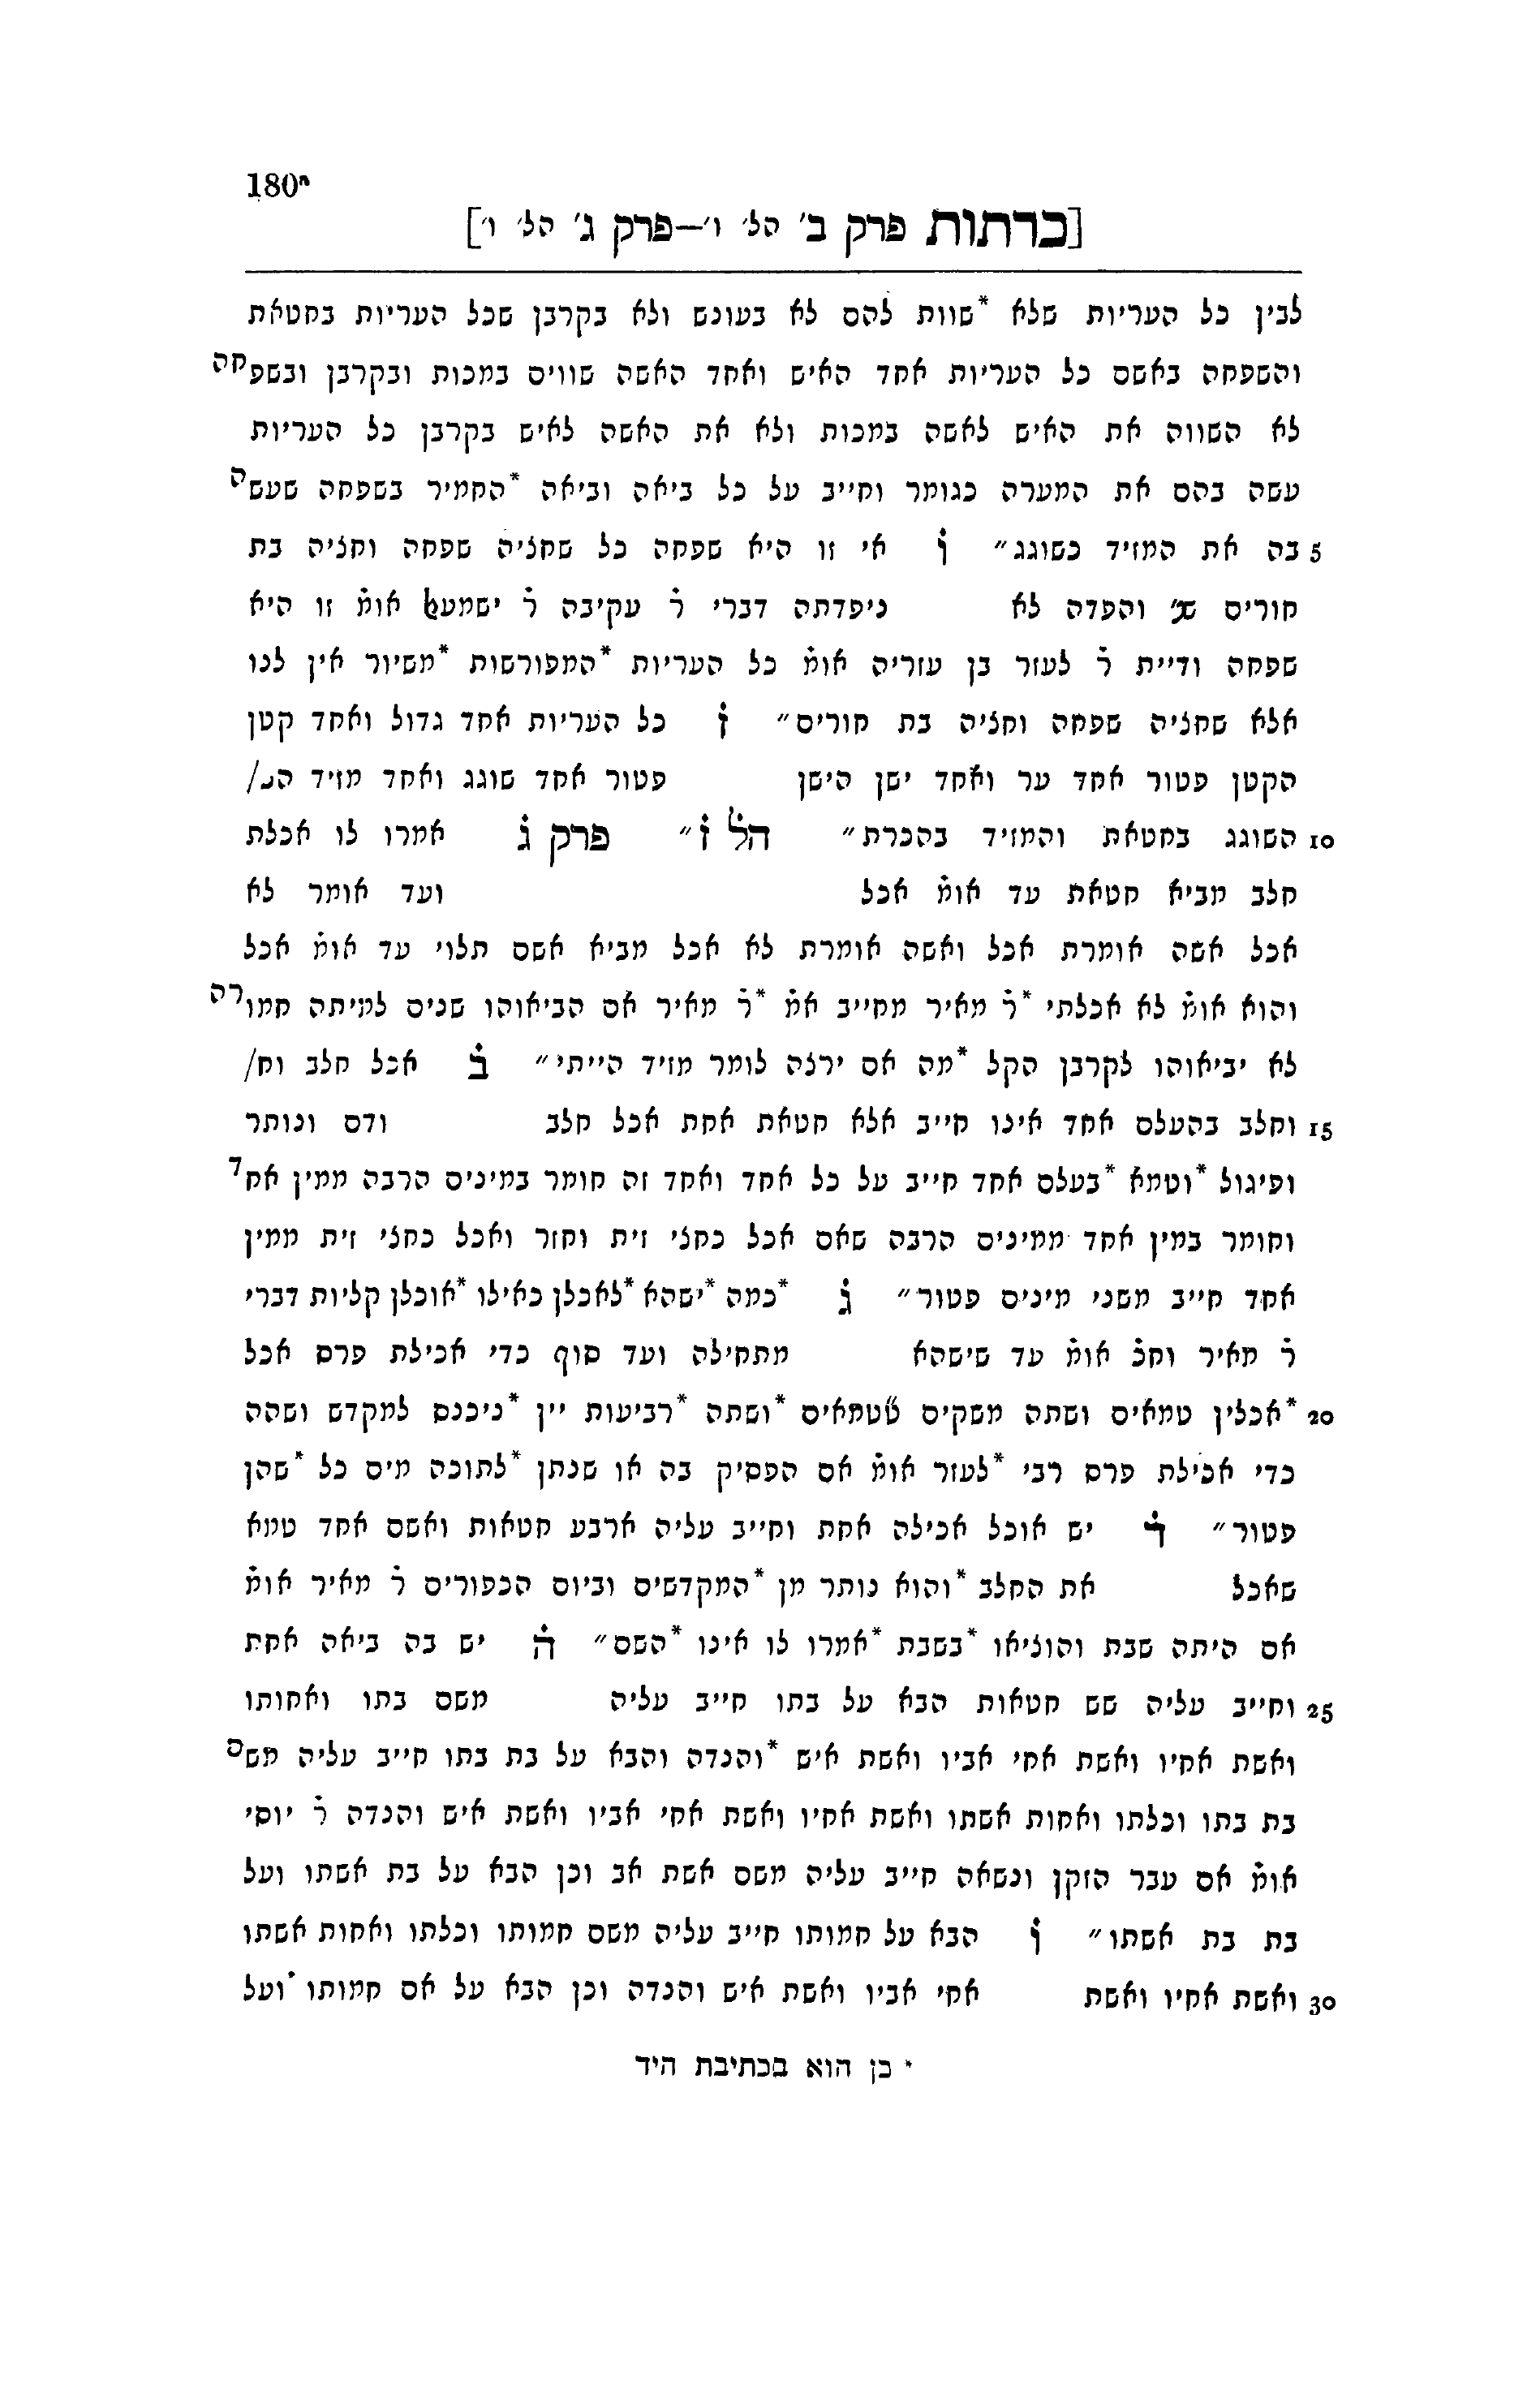 180ᵃ
[כרתות פרק ב׳ הל׳ ו׳—פרק ג׳ הל׳ ו׳]
לבין כל העריות שלא *שוות להם לא בעונש ולא בקרבן שכל העריות בחטאת
והשפחה באשם כל העריות אחד האיש ואחד האשה שווים במכות ובקרבן ובשפחה
לא השווה את האיש לאשה במכות ולא את האשה לאיש בקרבן כל העריות
עשה בהם את המערה כגומר וחייב על כל ביאה וביאה *החמיר בשפחה שעשה
5 בה את המזיד כשוגג״ ו̇ אי זו היא שפחה כל שחציה שפחה וחציה בת
חורים שנ׳ והפדה לא ניפדתה דברי ר̇ עקיבה ר̇ ישמעל אומ̇ זו היא
שפחה ודיית ר̇ לעזר בן עזריה אומ̇ כל העריות *המפורשות *משיור אין לנו
אלא שחציה שפחה וחציה בת חורים״ ז̇ כל העריות אחד גדול ואחד קטן
הקטן פטור אחד ער ואחד ישן הישן פטור אחד שוגג ואחד מזיד
10 השוגג בחטאת והמזיד בהכרת״ הל̇ ז̇״ פרק ג̇ אמרו לו אכלת
חלב מביא חטאת עד אומ̇ אכל ועד אומר לא
אכל אשה אומרת אכל ואשה אומרת לא אכל מביא אשם תלוי עד אומ̇ אכל
והוא אומ̇ לא אכלתי *ר̇ מאיר מחייב אמ̇ *ר̇ מאיר אם הביאוהו שנים למיתה חמורה
לא יביאוהו לקרבן הקל *מה אם ירצה לומר מזיד הייתי״ ב̇ אכל חלב וח/
15 וחלב בהעלם אחד אינו חייב אלא חטאת אחת אכל חלב ודם ונותר
ופיגול *וטמא *בעלם אחד חייב על כל אחד ואחד זה חומר במינים הרבה ממין אחד
וחומר במין אחד ממינים הרבה שאם אכל כחצי זית וחזר ואכל כחצי זית ממין
אחד חייב משני מינים פטור״ ג̇ *כמה *ישהא *לאכלן כאילו *אוכלן קליות דברי
ר̇ מאיר וחכ̇ אומ̇ עד שישהא מתחילה ועד סוף כדי אכילת פרס אכל
20 *אכלין טמאים ושתה משקים טטמאים *ושתה *רביעות יין *ניכנס למקדש ושהה
כדי אכילת פרס רבי *לעזר אומ̇ אם הפסיק בה או שנתן *לתוכה מים כל *שהן
פטור״ ד̇ יש אוכל אכילה אחת וחייב עליה ארבע חטאות ואשם אחד טמא
שאכל את החלב *והוא נותר מן *המקדשים וביום הכפורים ר̇ מאיר אומ̇
אם היתה שבת והוציאו *בשבת *אמרו לו אינו *השם״ ה̇ יש בה ביאה אחת
25 וחייב עליה שש חטאות הבא על בתו חייב עליה משם בתו ואחותו
ואשת אחיו ואשת אחי אביו ואשת איש *והנדה והבא על בת בתו חייב עליה משם
בת בתו וכלתו ואחות אשתו ואשת אחיו ואשת אחי אביו ואשת איש והנדה ר̇ יוסי
אומ̇ אם עבר הזקן ונשאה חייב עליה משם אשת אב וכן הבא על בת אשתו ועל
בת בת אשתו״ ו̇ הבא על חמותו חייב עליה משם חמותו וכלתו ואחות אשתו
30 ואשת אחיו ואשת אחי אביו ואשת איש והנדה וכן הבא על אם חמותו *ועל
* כן הוא בכתיבת היד